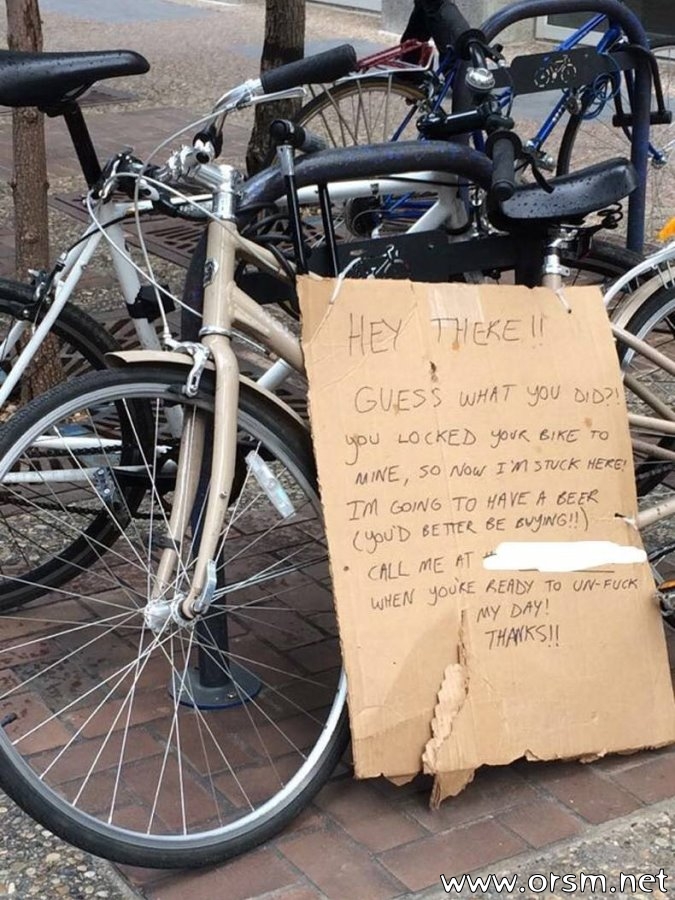 HEY THERE!!
GUESS WHAT YOU DID?!
YOU LOCKED YOUR BIKE TO
MINE, SO NOW I'M STUCK HERE!
IM GOING TO HAVE A BEER
(YOU'D BETTER BE BUYING!!)
CALL ME AT
WHEN YOU'RE READY TO UN-FUCK
MY DAY!
THANKS!!
www.orsm.net